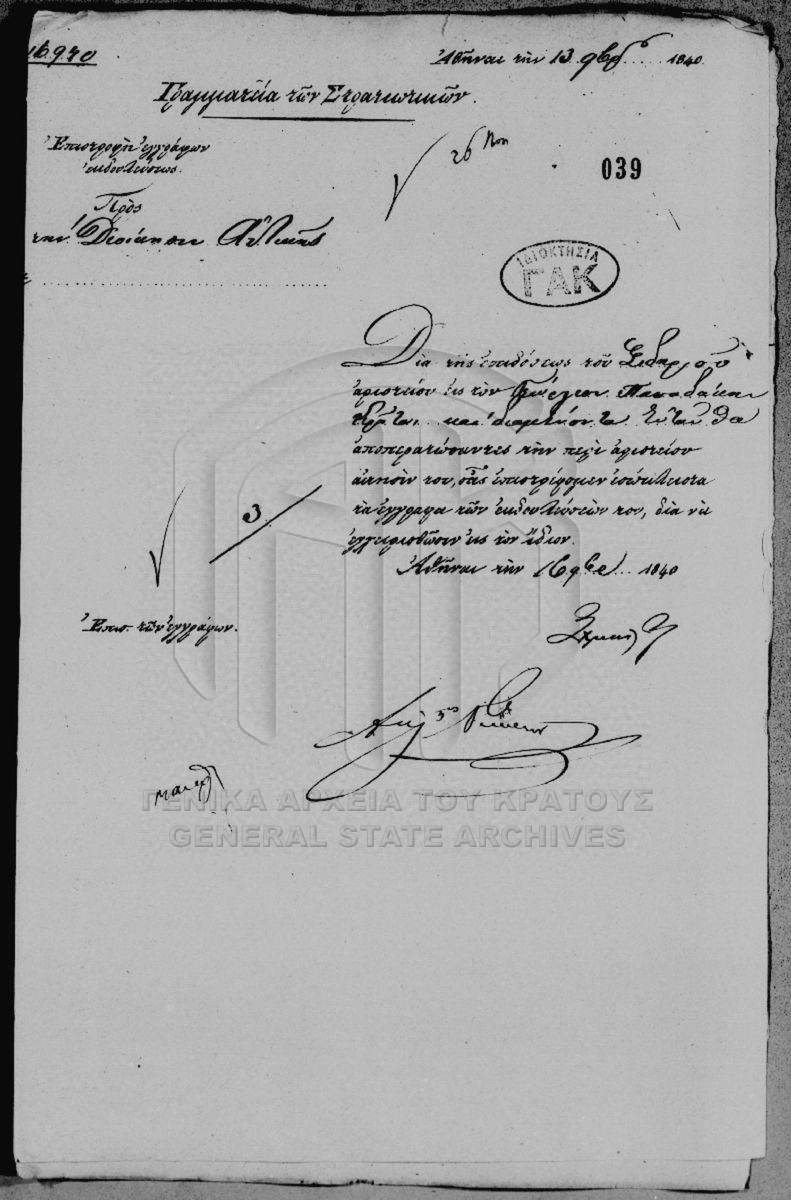 16.940
Ἀθῆναι τὴν 13 9βρ 1840.
Γραμματεία τῶν Στρατιωτικῶν.
Ἐπιστροφὴ ἐγγράφων
ἐκδουλεύσεως.
26
039
Πρὸς
τὴν Διοίκησιν Ἀττικῆς
ΙΔΙΟΚΤΗΣΙΑ
ΓΑΚ
Διὰ τῆς ἐπιδόσεως τοῦ Σιδηροῦ
ἀριστείου εἰς τὸν Γεώργιον Παπαδάκην
καὶ διαμένοντα ἐνταῦθα
ἀποπερατώσαντες τὴν περὶ ἀριστείου
αἴτησίν του, σᾶς ἐπιστρέφομεν ἐσώκλειστα
τὰ ἔγγραφα τῶν ἐκδουλεύσεών του, διὰ νὰ
ἐγχειρισθῶσιν εἰς τὸν ἴδιον.
3
Ἀθῆναι τὴν 16 9βρ 1840
Ἐπισ. τῶν ἐγγράφων.
ΓΕΝΙΚΑ ΑΡΧΕΙΑ ΤΟΥ ΚΡΑΤΟΥΣ
GENERAL STATE ARCHIVES